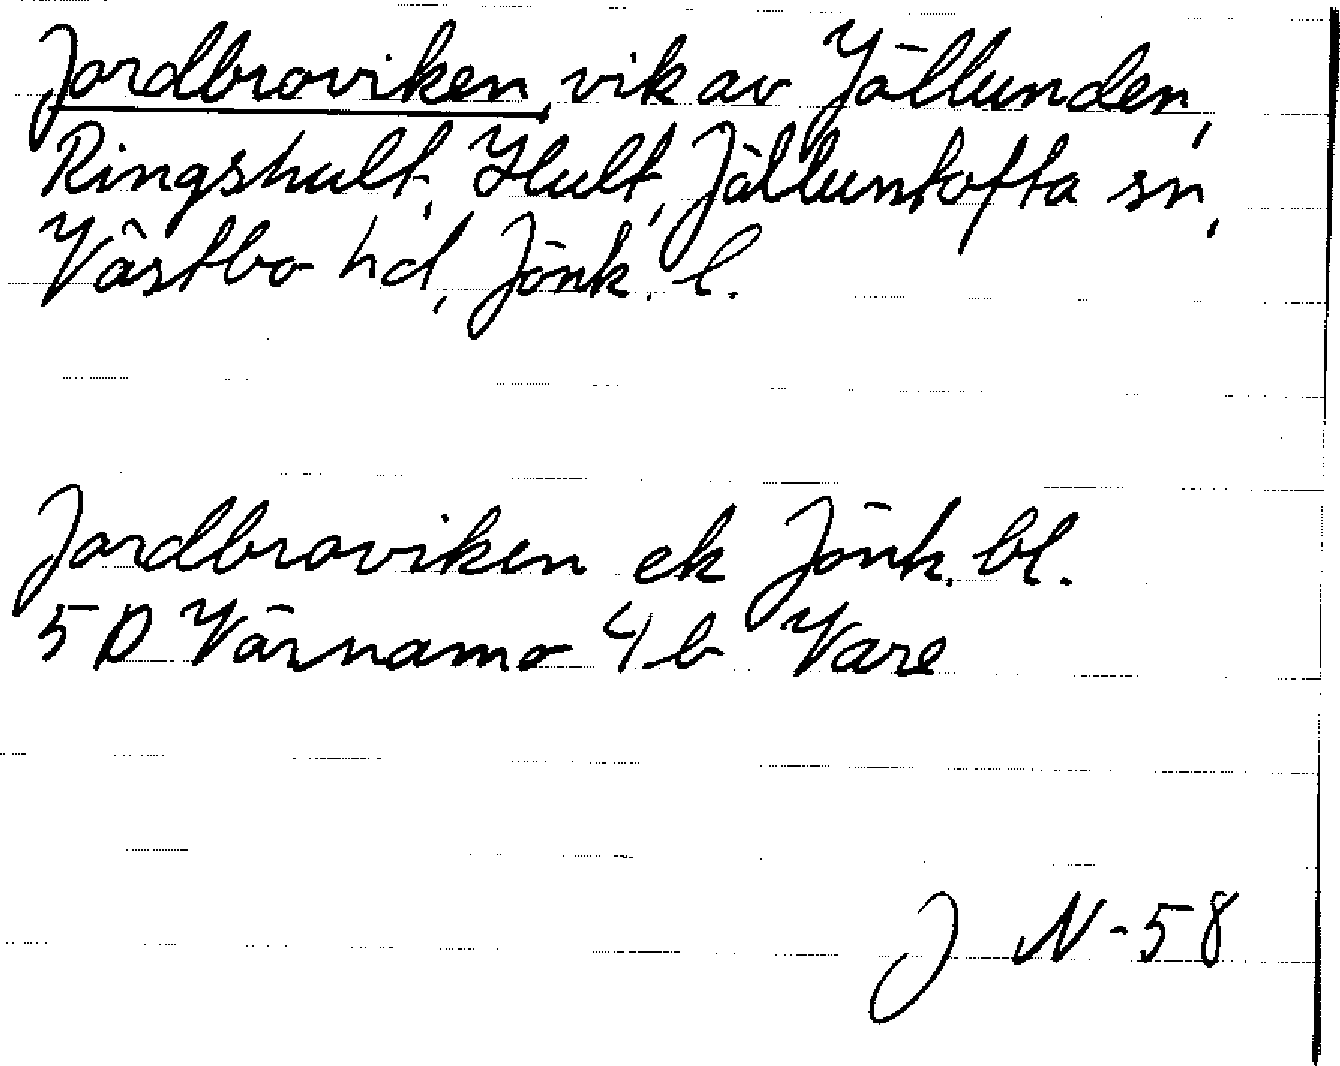 Jordbroviken, vik av Jällunden,
Ringshult, Hult, Jälluntofta sn,
Västbo hd, Jönk. l.
Jordbroviken ek Jönk. bl.
5 D Värnamo 4 b Vare
J N-58